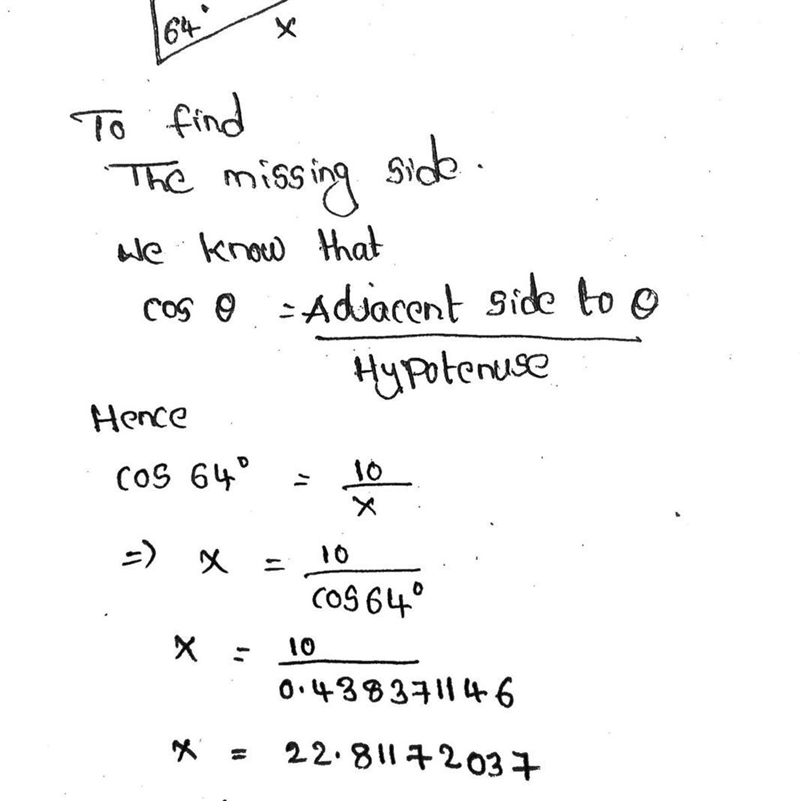 64°
x
To find
The missing side.
We know that
cos θ = Adjacent side to θ
Hypotenuse
Hence
cos 64° = 10/x
=) x = 10/cos 64°
x = 10/0.438371146
x = 22.81172037